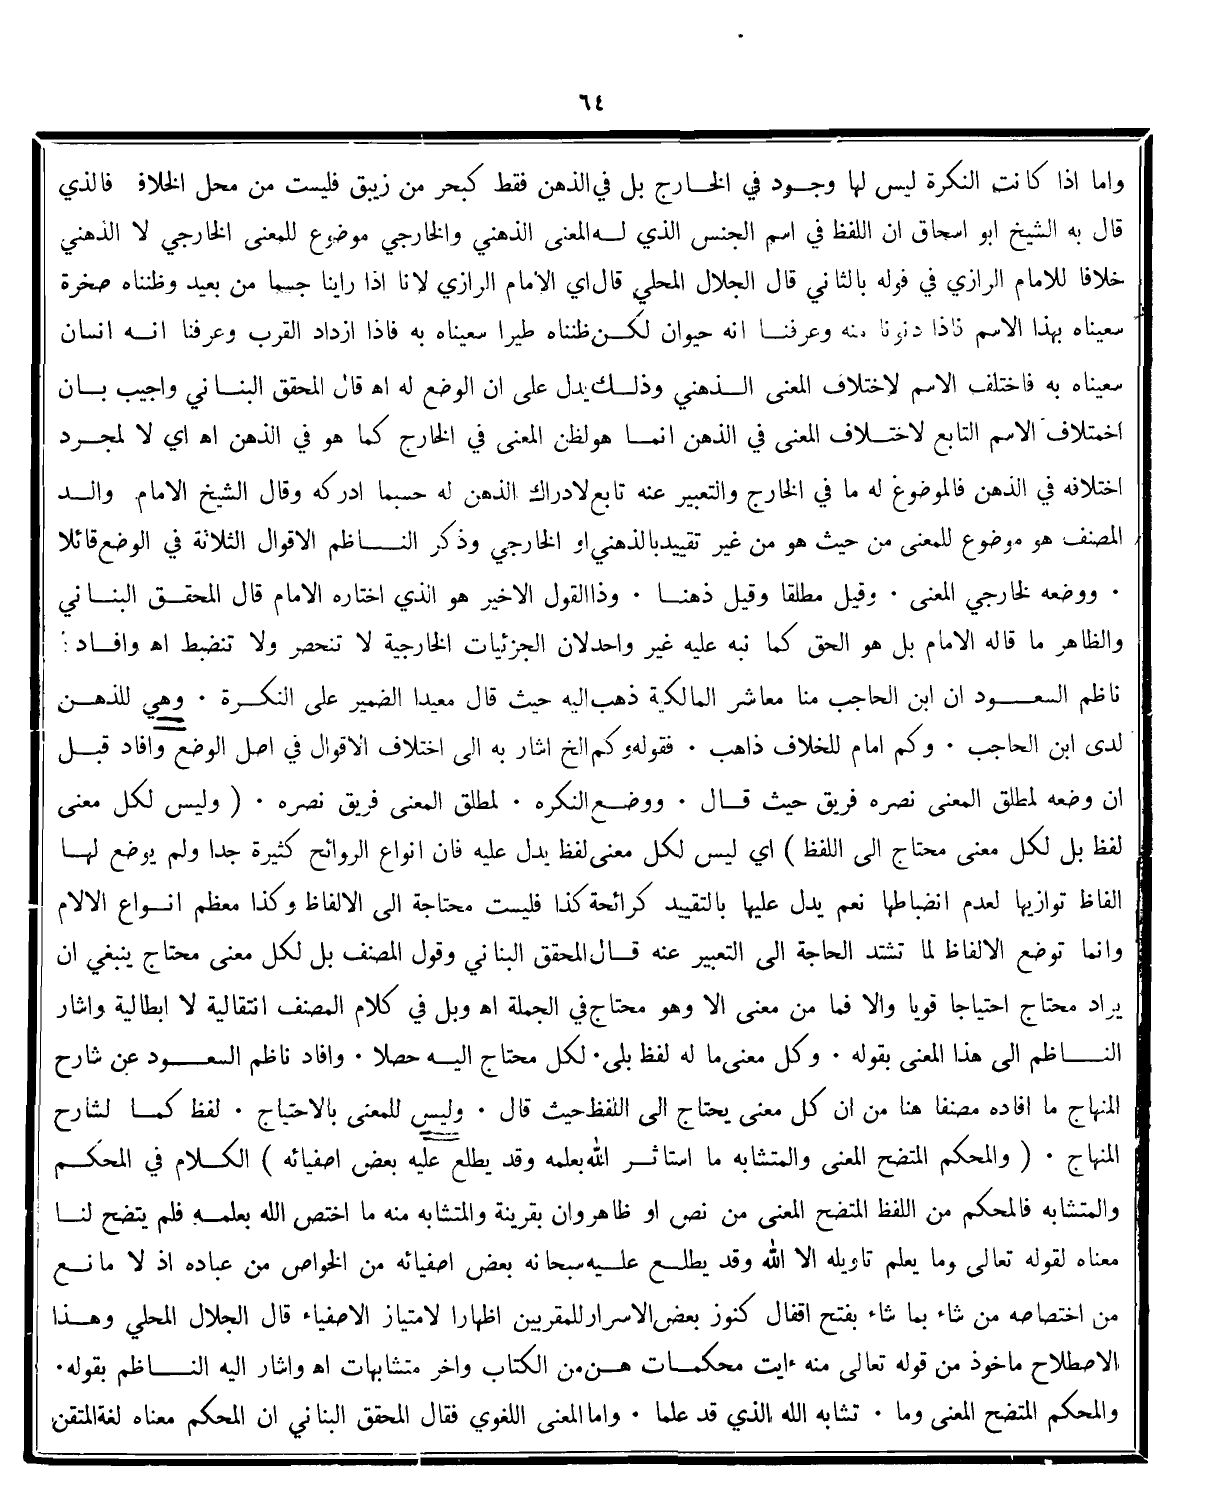 ٦٤
واما اذا كانت النكرة ليس لها وجود في الخارج بل في الذهن فقط كبحر من زيبق فليست من محل الخلاف فالذي
قال به الشيخ ابو اسحاق ان اللفظ في اسم الجنس الذي له المعنى الذهني والخارجي موضوع للمعنى الخارجي لا الذهني
خلافا للامام الرازي في قوله بالثاني قال الجلال المحلي قال اي الامام الرازي لانا اذا راينا جسما من بعيد وظنناه صخرة
سميناه بهذا الاسم فاذا دنونا منه وعرفنا انه حيوان لكن ظنناه طيرا سميناه به فاذا ازداد القرب وعرفنا انه انسان
سميناه به فاختلف الاسم لاختلاف المعنى الذهني وذلك يدل على ان الوضع له اه قال المحقق البناني واجيب بان
اختلاف الاسم التابع لاختلاف المعنى في الذهن انما هو لظن المعنى في الخارج كما هو في الذهن اه اي لا لمجرد
اختلافه في الذهن فالموضوع له ما في الخارج والتعبير عنه تابع لادراك الذهن له حسبما ادركه وقال الشيخ الامام والد
المصنف هو موضوع للمعنى من حيث هو من غير تقييد بالذهني او الخارجي وذكر الناظم الاقوال الثلاثة في الوضع قائلا
· ووضعه لخارجي المعنى · وقيل مطلقا وقيل ذهنا · وذا القول الاخير هو الذي اختاره الامام قال المحقق البناني
والظاهر ما قاله الامام بل هو الحق كما نبه عليه غير واحد لان الجزئيات الخارجية لا تنحصر ولا تنضبط اه وافاد :
ناظم السعود ان ابن الحاجب منا معاشر المالكية ذهب اليه حيث قال معيدا الضمير على النكرة · وهي للذهن
لدى ابن الحاجب · وكم امام للخلاف ذاهب · فقوله وكم الخ اشار به الى اختلاف الاقوال في اصل الوضع وافاد قبل
ان وضعه لمطلق المعنى نصره فريق حيث قال · ووضع النكره · لمطلق المعنى فريق نصره · ( وليس لكل معنى
لفظ بل لكل معنى محتاج الى اللفظ ) اي ليس لكل معنى لفظ يدل عليه فان انواع الروائح كثيرة جدا ولم يوضع لها
الفاظ توازيها لعدم انضباطها نعم يدل عليها بالتقييد كرائحة كذا فليست محتاجة الى الالفاظ وكذا معظم انواع الالام
وانما توضع الالفاظ لما تشتد الحاجة الى التعبير عنه قال المحقق البناني وقول المصنف بل لكل معنى محتاج ينبغي ان
يراد محتاج احتياجا قويا والا فما من معنى الا وهو محتاج في الجملة اه وبل في كلام المصنف انتقالية لا ابطالية واشار
الناظم الى هذا المعنى بقوله · وكل معنى ما له لفظ بلى · لكل محتاج اليه حصلا · وافاد ناظم السعود عن شارح
المنهاج ما افاده مصنفا هنا من ان كل معنى يحتاج الى اللفظ حيث قال · وليس للمعنى بالاحتياج · لفظ كما لشارح
المنهاج · ( والمحكم المتضح المعنى والمتشابه ما استاثر الله بعلمه وقد يطلع عليه بعض اصفيائه ) الكلام في المحكم
والمتشابه فالمحكم من اللفظ المتضح المعنى من نص او ظاهر وان بقرينة والمتشابه منه ما اختص الله بعلمه فلم يتضح لنا
معناه لقوله تعالى وما يعلم تاويله الا الله وقد يطلع عليه سبحانه بعض اصفيائه من الخواص من عباده اذ لا مانع
من اختصاصه من شاء بما شاء بفتح اقفال كنوز بعض الاسرار للمقربين اظهارا لامتياز الاصفياء قال الجلال المحلي وهذا
الاصطلاح ماخوذ من قوله تعالى منه ءايت محكمات هن من الكتاب واخر متشابهات اه واشار اليه الناظم بقوله ·
والمحكم المتضح المعنى وما · تشابه الله الذي قد علما · واما المعنى اللغوي فقال المحقق البناني ان المحكم معناه لغة المتقن